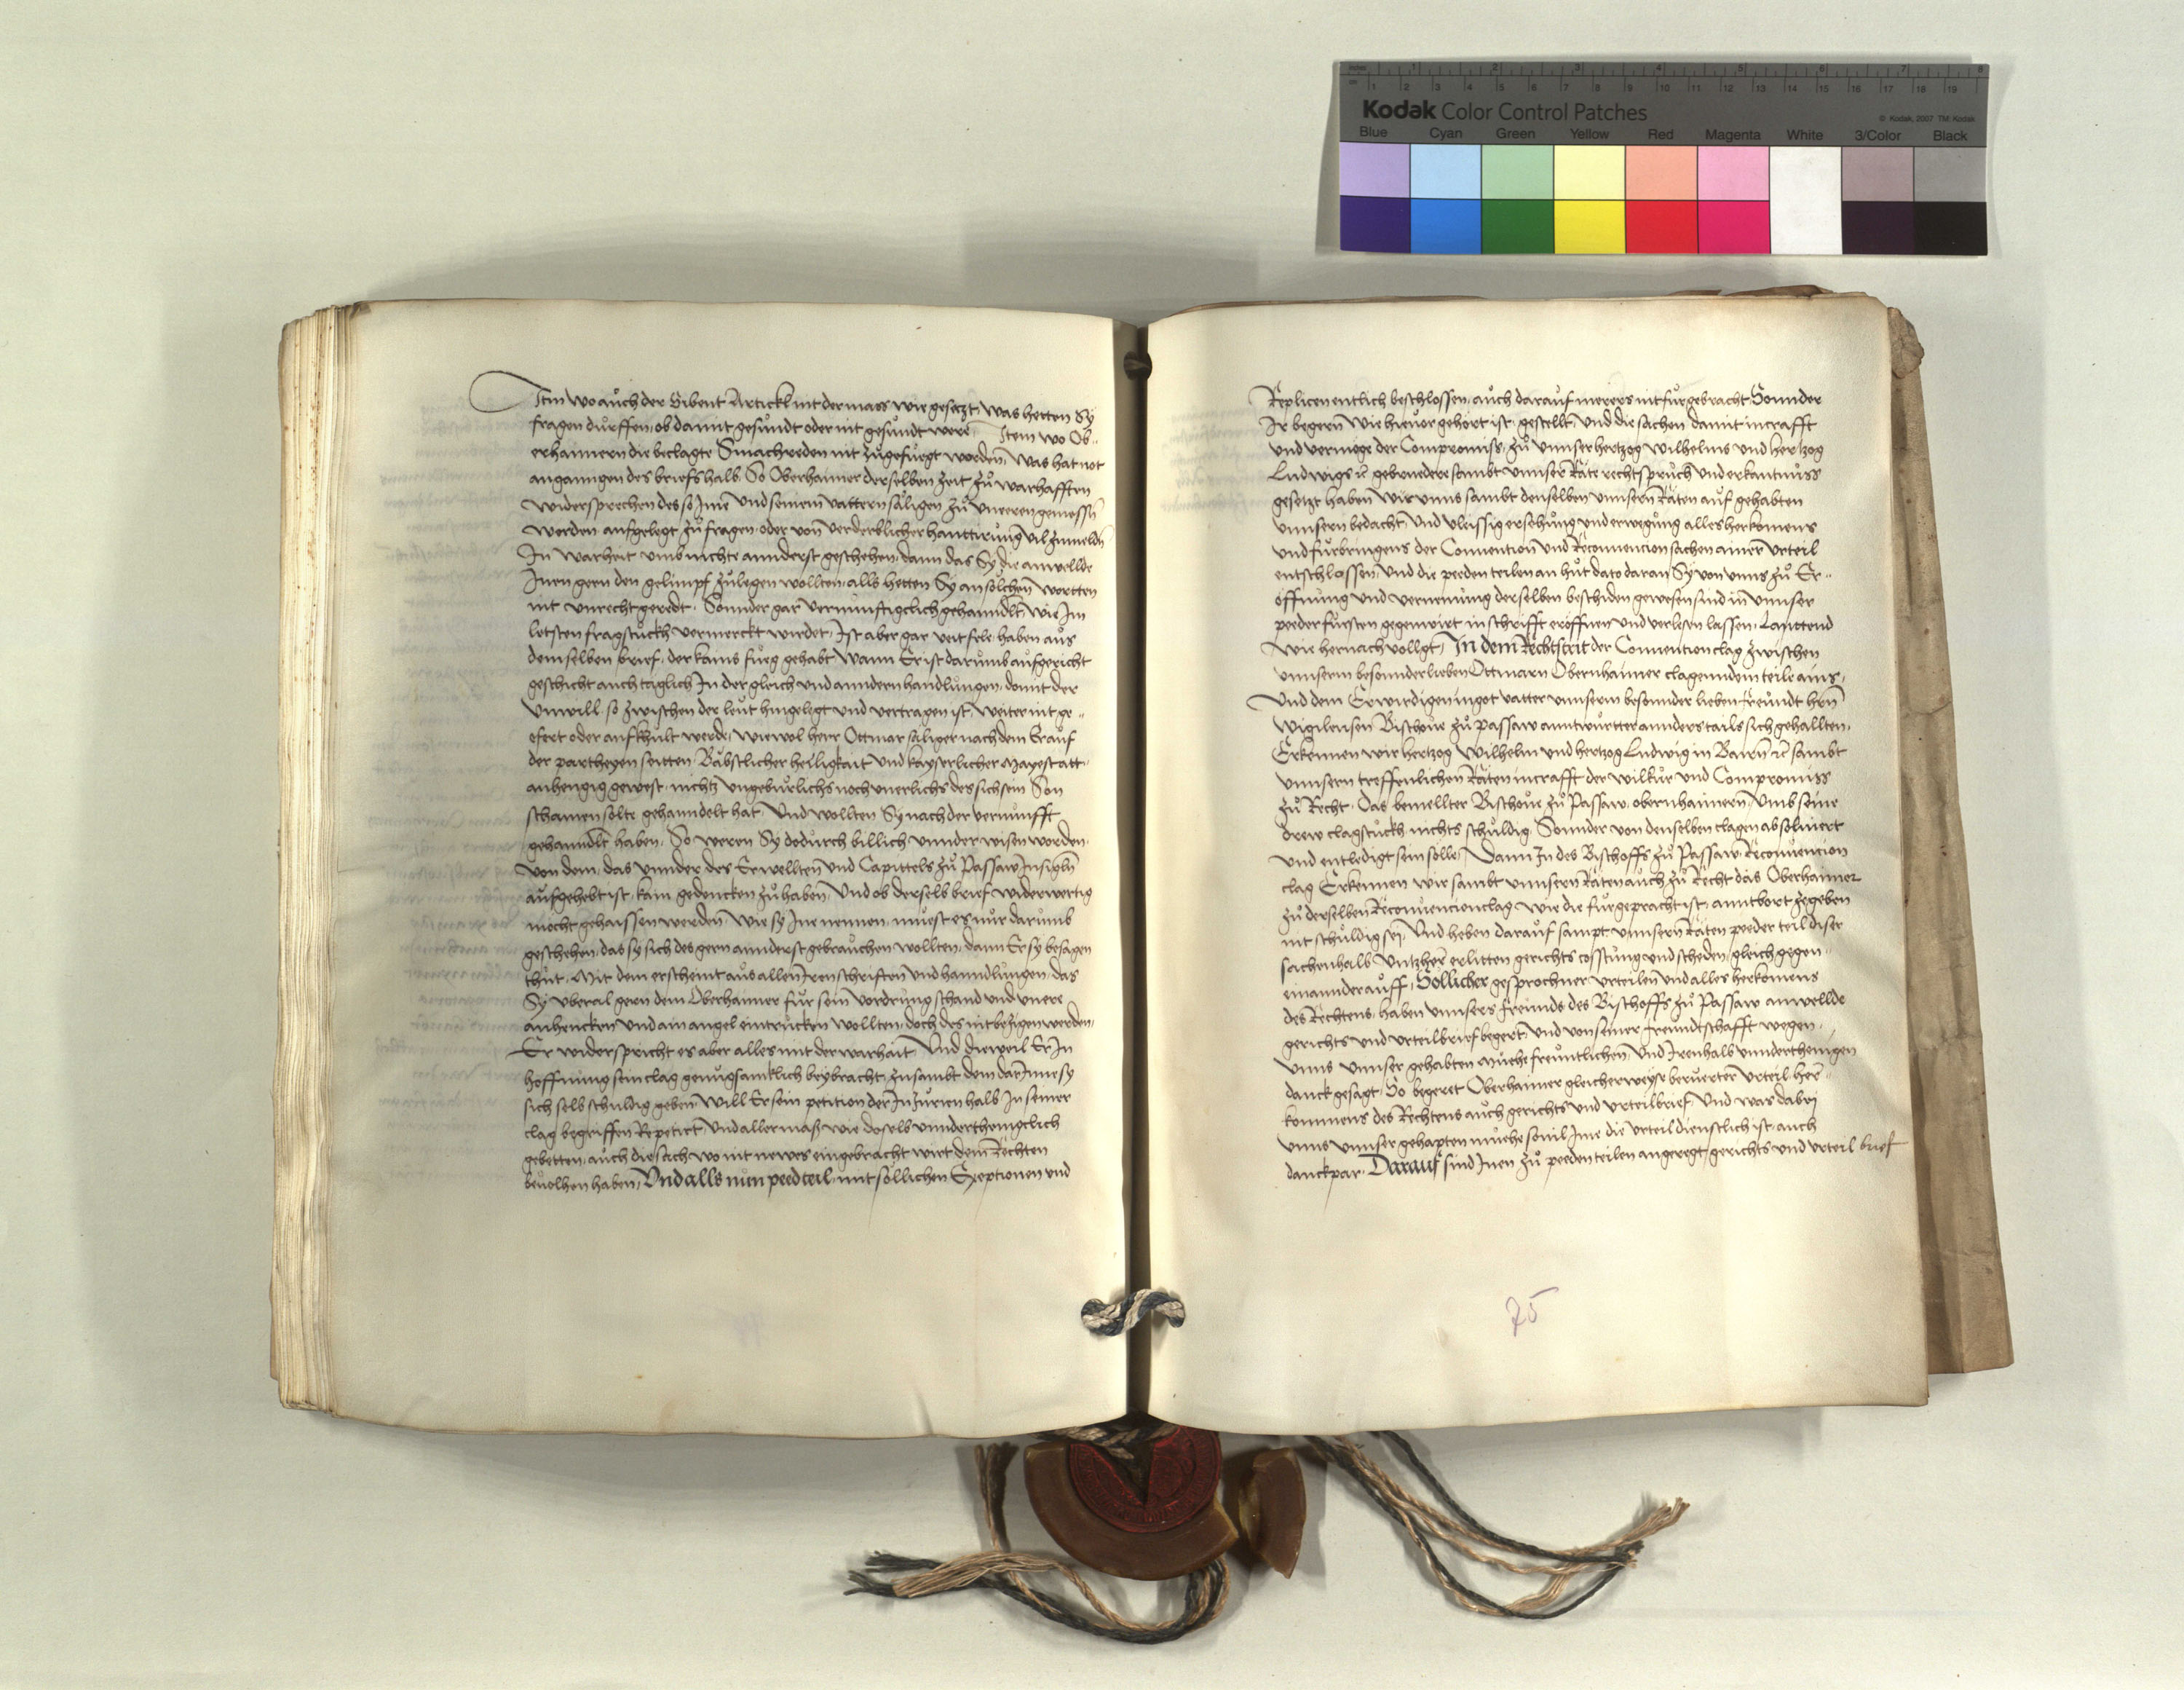 Kodak Color Control Patches
© Kodak, 2007 TM: Kodak
Blue Cyan Green Yellow Red Magenta White 3/Color Black
Item wo auch der Sibent Artickl nit dermass wie gesetzt, was hetten Sy
fragen dürffen, ob damit gesündt oder nit gesündt were, Item wo Ob-
erhaimern die beclagte Smachreden nit zůgefuegt worden, was hat not
anganngen des briefs halb, So Oberhaimer derselben zeit zů warhafften
widersprechen des so Ime und seinem vattern säligen zů uneeren gemessn
werden aufgelegt zů fragen, oder von verderblicher hanttirung vil zumeldn
In warheit umb nichte annderst geschehen, dann das Sy die anwellde
Inen gern den gelimpf zůlegen wollten, alls hetten Sy an solchen wortten
nit unrecht geredt, Sonnder gar vernunftigclich gehanndlt, wie Im
letsten fragstuckh vermerckt wirdet, Ist aber gar weit fele, haben aus
demselben brief, der kains fueg gehabt, Wann Er ist darumb aufgericht
geschicht auch täglich In der gleich und anndern handlungen, damit der
Unwill so zwischen der leut hingelegt und vertragen ist, weiter nit ge-
efert oder aufkhult werde, wiewol herr Ottmar säliger nach dem Er auf
der partheyen seitten Bäbstlicher heiligkait und kayserlicher Mayestatt
anhengig gewest, nichtz ungebürlichs noch unerlichs des sich sein Son
schamen solte gehanndelt hat, Und wollten Sy nach der vernunfft
gehanndlt haben, So weren Sy dodurch billich unnderwisen worden
von dem, das unnder des Erwellten und Capittels zů Passaw Insigln
aufgehebt ist, kain gedencken zů haben, Und ob derselb brief widerwertig
möcht gehaissen werden, wie sy Ine nennen, muest es nur darumb
geschehen, das sy sich des gern annderst gebrauchen wollten, dann Er sy besagen
thut, Mit dem erscheint aus allen Iren schrifften und hanndlungen, das
Sy uberal gern dem Oberhaimer für sein vordrung schand und unere
anhencken und ain angel eintrucken wollten, doch des nit bezigen werden,
Er widerspricht es aber alles mit der warhait, Und dieweil Er In
hoffnung sein clag genugsamklich beybracht, zusambt dem darInne sy
sich selb schuldig geben, will Er sein petition der Inzurien halb In seiner
clag begriffen Repetirt, Und allermaß wie doselb unnderthenigclich
gebetten, auch die sach wo nit newes eingebracht wirt dem Rechten
bevolhen haben, Und alls nun peed teil, mit söllichen Exeptionen und
Replicen entlich beschlossen, auch darauf merers nit fürgebracht Sonnder
Ir begern wie hievor gehört ist, gestellt, Und die sachen damit in crafft
und vermöge der Compromiss, zů unnser hertzog Wilhelms und hertzog
Ludwigs etc gebruedere sambt unnser Räte rechtspruch und erkantnuss
gesetzt haben Wir unns sambt denselben unnsern Räten auf gehabten
unnsern bedacht, Und vleissig ersehung und erwegung alles herkomens
und fürbringens der Convention und Reconvencion sachen ainer Urteil
entschlossen, Und die peeden teilen an hut dato daran Sy von unns zů Er-
öffnung und vernemung derselben beschiden gewesen sind in unnser
peeder fürsten gegenwirt in schrifft eröffnen und verlesen lassen, Lauttend
wie hernach vollgt, In dem Rechtstrit der Convention clag zwischen
unnserm besonnder lieben Ottmarn Obernhaimer clagenndem teile ains,
Und dem Erwirdigen in got vatter unnserm besonder lieben freundt hrn
Wigileusen Bischove zů Passaw anntwurtter annders tails sich gehallten,
Erkennen wir hertzog Wilhelm und hertzog Ludwig in Bairn etc sambt
unnsern treffenlichen Räten in crafft der wilkür und Compromiss
zů Recht, Das bemellter Bischove zů Passaw, obernhaimern, Umb seine
drew clagstuckh nichts schuldig, Sonnder von denselben clagen absolviert
und entledigt sein solle, Dann In des Bischoffs zů Passaw Reconvencion
clag Erkennen wir sambt unnsern Räten auch zů Recht das Oberhaimer
zů derselben Reconvencion clag wie die fürgepracht ist, anntbort zegeben
nit schuldig sey, Und heben darauf sampt unnsern Räten peeder teil diser
sachenhalb Untzher erlitten gerichts cosstung und scheden, gleich gegen-
einannder auff, Söllicher gesprochner Urteilen und alles herkomens
des Rechtens, haben unnsers freunds des Bischoffs zů Passaw anwellde
gerichts und urteilbrief begert, Und von seiner freundtschafft wegen,
unns unnser gehabten Muehe freuntlichen, Und Irenhalb unnderthenigen
danck gesagt, So begeret Oberhaimer gleicherweyse beruerter Urteil, her-
kommens des Rechtens auch gerichts und Urteilbrief, Und was dabej
unns unnser gehapten muehe sovil Ime die Urteil dienstlich ist, auch
danckpar, Darauf sind Inen zů peeden teilen angeregt, gerichts und urteil brief
75